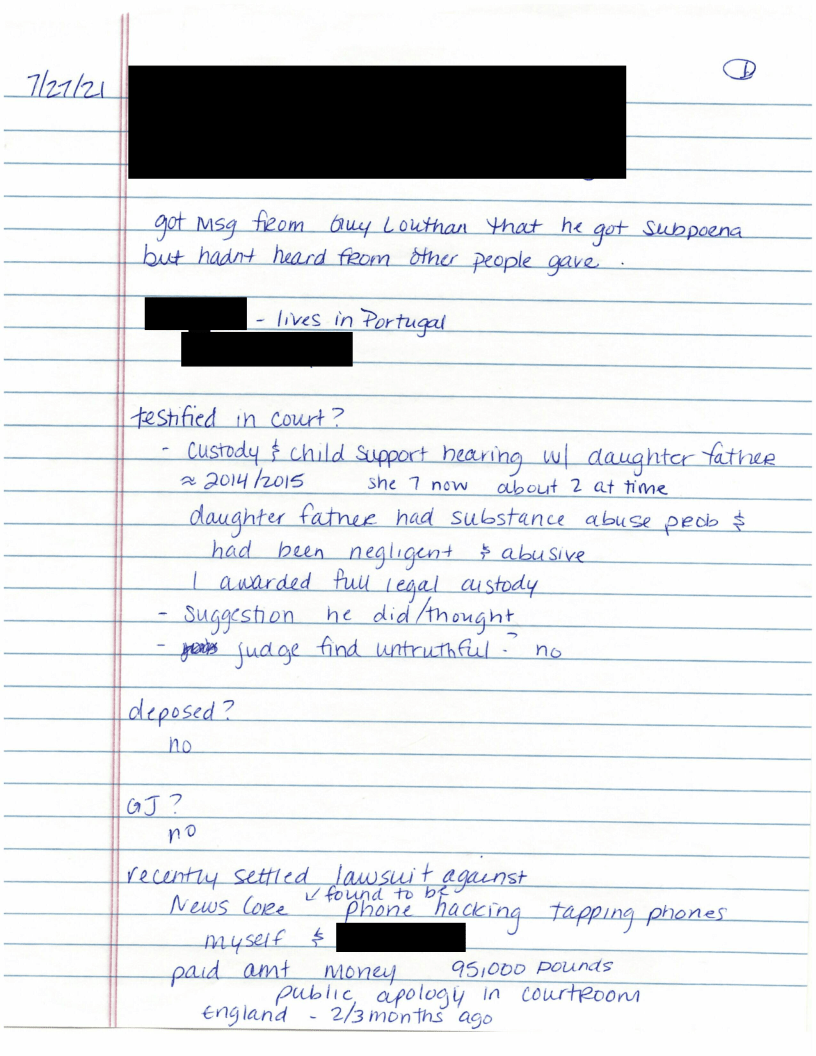 ①
7/27/21
got msg from Guy Louthan that he got subpoena
but hadnt heard from other people gave.
- lives in Portugal
testified in court?
- custody & child support hearing w/ daughter father
≈ 2014/2015 she 7 now about 2 at time
daughter father had substance abuse prob &
had been negligent & abusive
I awarded full legal custody
- suggestion he did/thought
- judge find untruthful? no
deposed?
no
GJ?
no
recently settled lawsuit against
↙ found to be
News Core phone hacking tapping phones
myself &
paid amt money 95,000 pounds
public apology in courtroom
England - 2/3 months ago